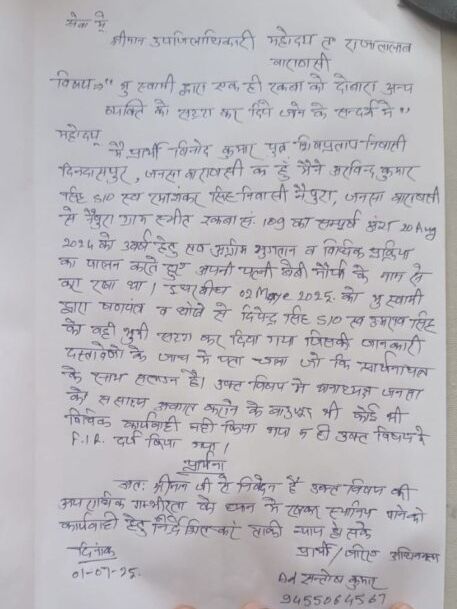 सेवा में
श्रीमान उपजिलाधिकारी महोदय त० राजातालाब
वाराणसी
विषयः- "भू स्वामी द्वारा एक ही रकबा को दोबारा अन्य
व्यक्ति को सट्टा कर दिये जाने के सन्दर्भ में"
महोदय
मैं प्रार्थी विनोद कुमार पुत्र शिवप्रताप निवासी
दिनदासपुर, जनसा वाराणसी का हूं मैने अरविन्द कुमार
सिंह S/O स्व रमाशंकर सिंह निवासी नैपुरा, जनसा वाराणसी
से नैपुरा ग्राम स्थीत रकबा सं 189 का सम्पूर्ण अंश 20 Aug
2024 को हेतु अग्रीम भुगतान व विधिक प्रक्रिया
का पालन करते हुए अपनी पत्नी बेबी के नाम से
करा रखा था। इसी बीच 02 Maye 2025 को भू स्वामी
द्वारा षणयंत्र व धोखे से दिपेन्द्र सिंह S/O स्व उमराव सिंह
को वही भूमी सट्टा कर दिया गया जिसकी जानकारी
दस्तावेजो के जाच में पता चला जो कि प्रार्थनापत्र
के साथ सलग्न है। उक्त विषय में थानाध्यक्ष जनसा
को अवगत कराने के बावजूद भी कोई भी
विधिक कार्यवाही नही किया गया न ही उक्त विषय में
F.I.R. दर्ज किया गया।
प्रार्थना
अतः श्रीमान जी से निवेदन है उक्त विषय की
गम्भीरता को ध्यान में रखकर स्थानिय थाने को
कार्यवाही हेतु निर्देशित करें ताकी न्याय हो सके
दिनांक प्रार्थी
01-07-25. सन्तोष कुमार
9455064567